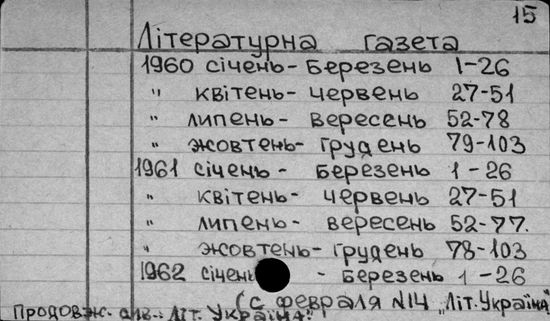 15
Літературна газета
1960 січень - Березень 1-26
" квітень - червень 27-51
" липень - вересень 52-78
" жовтень - грудень 79-103
1961 січень - Березень 1-26
" квітень - червень 27-51
" липень - вересень 52-77.
" жовтень - грудень 78-103
1962 січень - Березень 1-26
(с февраля N14 "Літ. Україна"
Продовж. див.: Літ. Україна".